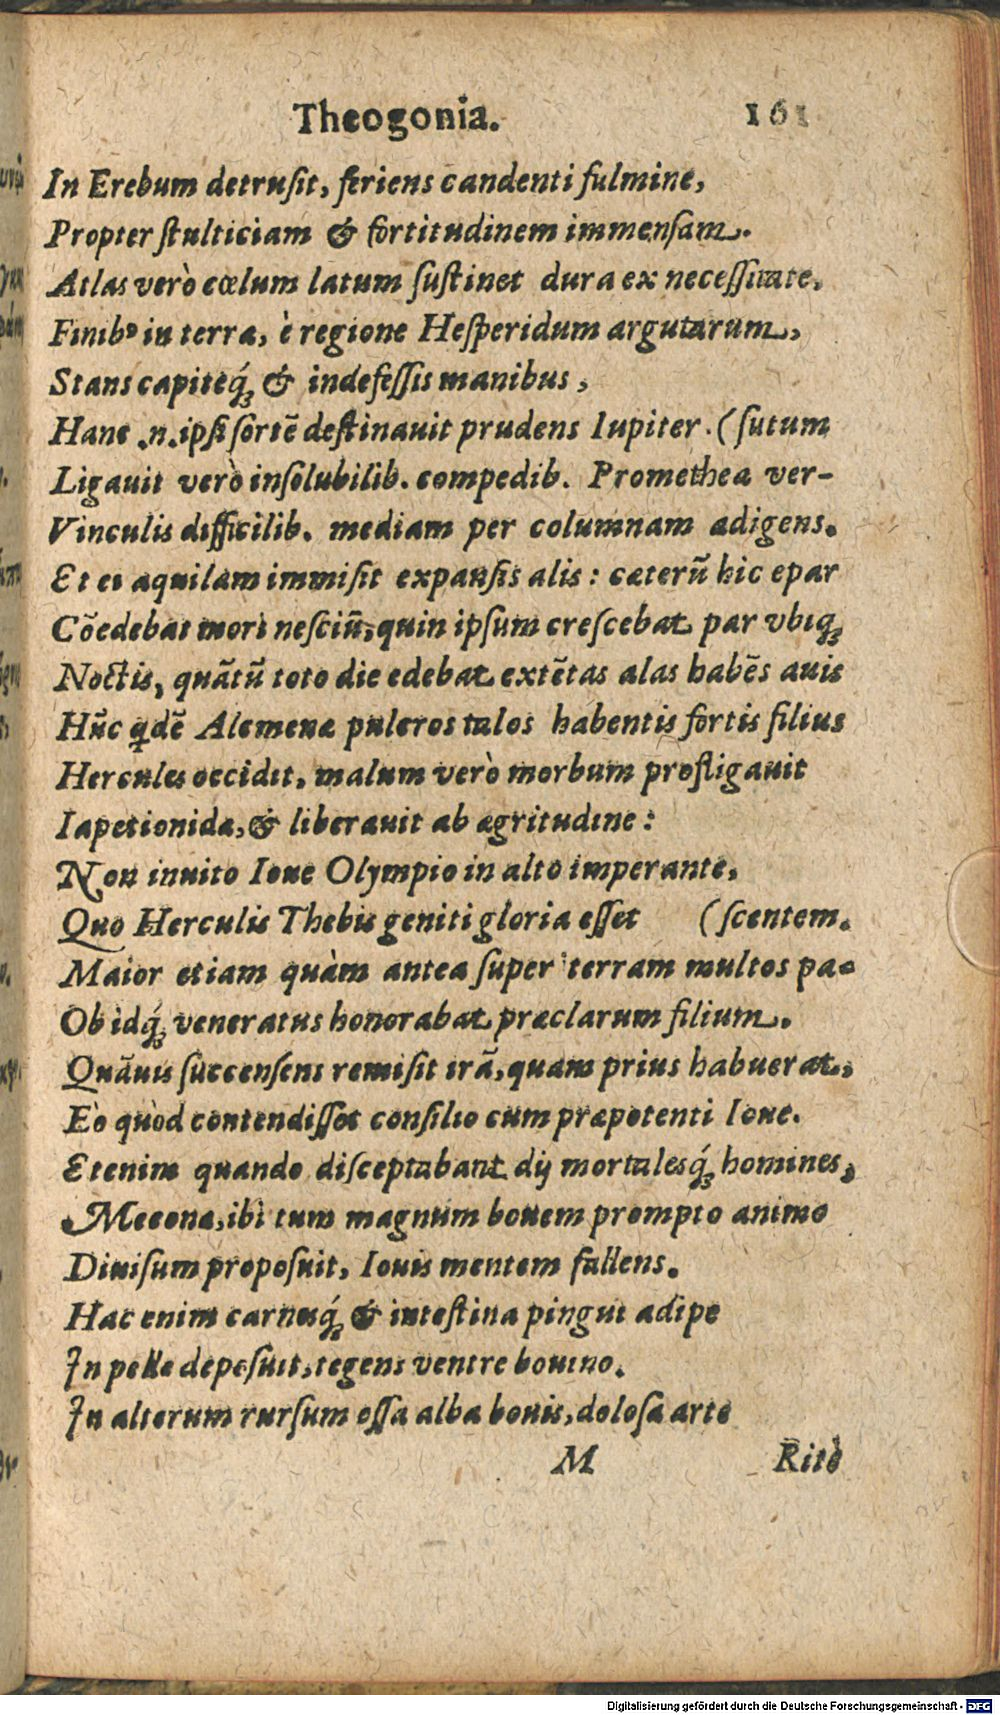 Theogonia. 161
In Erebum detruſit, feriens candenti fulmine,
Propter ſtulticiam & fortitudinem immenſam.
Atlas verò cœlum latum ſuſtinet dura ex neceſſitate,
Finibꝰ in terra, è regione Heſperidum argutarum,
Stans capiteq́ꝫ & indefeſſis manibus,
Hanc .n. ipſi ſortē deſtinauit prudens Iupiter. (ſutum
Ligauit verò inſolubilib. compedib. Promethea ver-
Vinculis difficilib. mediam per columnam adigens.
Et ei aquilam immiſit expanſis alis: cæterū hic epar
Cōedebat mori neſciū, quin ipſum creſcebat par vbiqꝫ
Noctis, quātū toto die edebat extētas alas habēs auis
Hūc qdē Alcmenæ pulcros talos habentis fortis filius
Hercules occidit, malum verò morbum profligauit
Iapetionidæ, & liberauit ab ægritudine:
Non inuito Ioue Olympio in alto imperante,
Quo Herculis Thebis geniti gloria eſſet (ſcentem.
Maior etiam quàm antea ſuper terram multos pa-
Ob idq́ꝫ veneratus honorabat præclarum filium.
Quāuis ſuccenſens remiſit irā, quam prius habuerat,
Eò quòd contendiſſet conſilio cum præpotenti Ioue.
Etenim quando diſceptabant dij mortalesq́ꝫ homines,
Mecone, ibi tum magnum bouem prompto animo
Diuiſum propoſuit, Iouis mentem fallens.
Hac enim carnesq́ꝫ & inteſtina pingui adipe
In pelle depoſuit, tegens ventre bouino.
In alterum rurſum oſſa alba bouis, doloſa arte
M Ritè
Digitalisierung gefördert durch die Deutsche Forschungsgemeinschaft - DFG